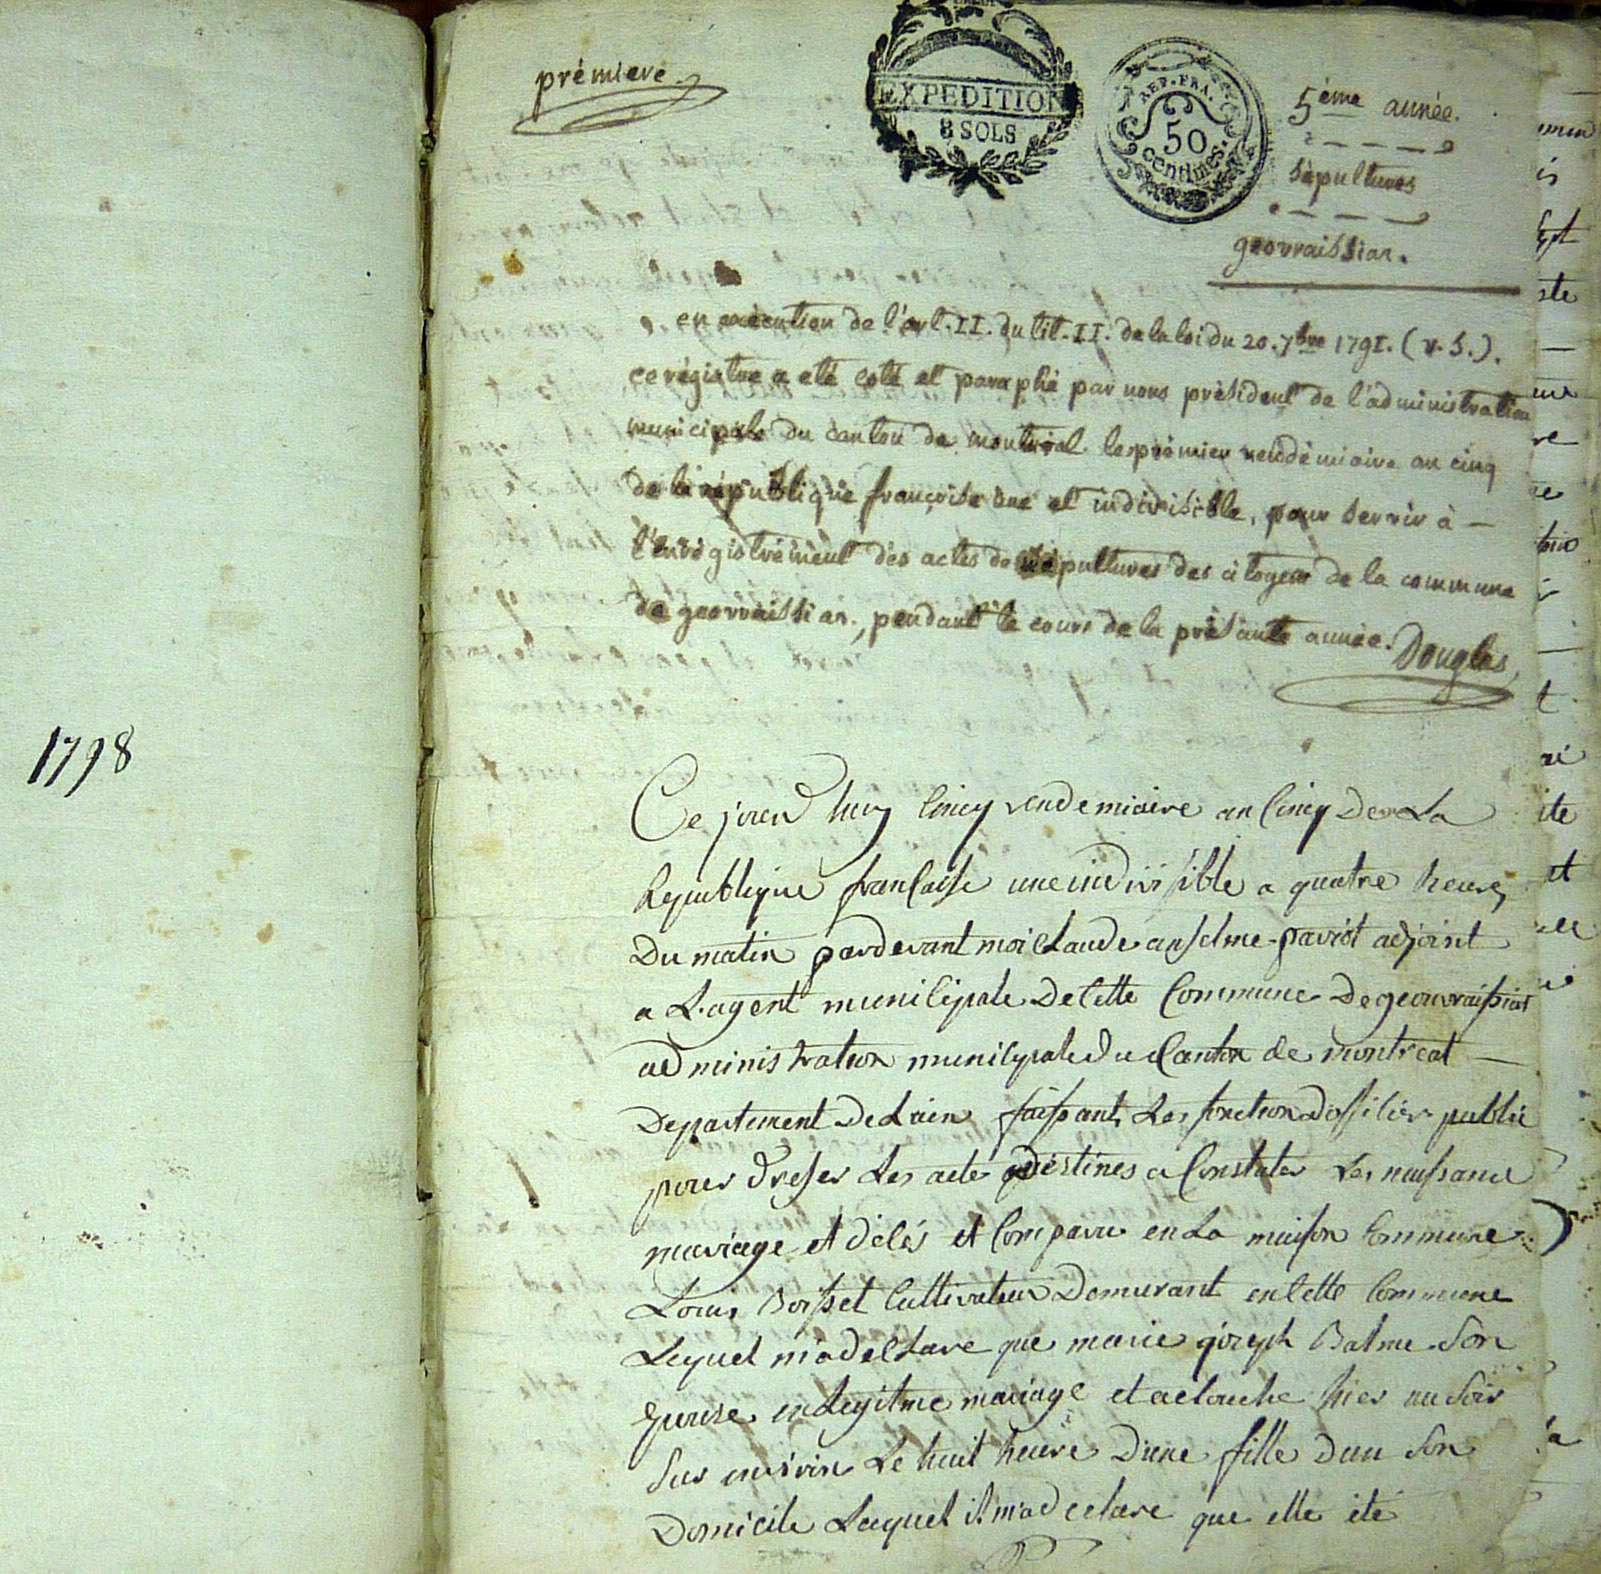 1798
première
EXPEDITION
8 SOLS
REP. FRA.
50
centimes.
5ème année.
sépultures
geovraissiar.
en exécution de l'art. II. du tit. II. de la loi du 20. 7bre 1791. (v. s.).
ce régistre a eté coté et paraphé par nous président de l'administration
municipale du canton de montréal le prémier vendémiaire an cinq
de la république françoise une et indivisible, pour servir à —
l'enrégistrément des actes de sépultures des citoyens de la commune
de geovraissiar, pendant le cours de la présante année. Douglas
Ce jourd huy Cincq vendemiaire an Cincq De La
Republique francaisse une indivisible a quatre heures
Du matin pardevant moi Claude anselme paviot adjoint
a L'agent municipale De Cette Commune De geovraissiat
administration municipale Du Canton de montreal —
Departement De Lain faissant Les fonction Dofficier public
pour Dresser Les acte Destines a Constater Les naissance
mariage et déces et Comparu en La maison Commune
Louis Boisset Cultivateur Demurant en Cette Commune
Lequel m'a declare que marie joseph Balme son
Epouse en Legitime mariage et acouche hier au soir
sur environ Le huit heure Dune fille Dan son
Domicile Laquel il m'a declare que elle eté